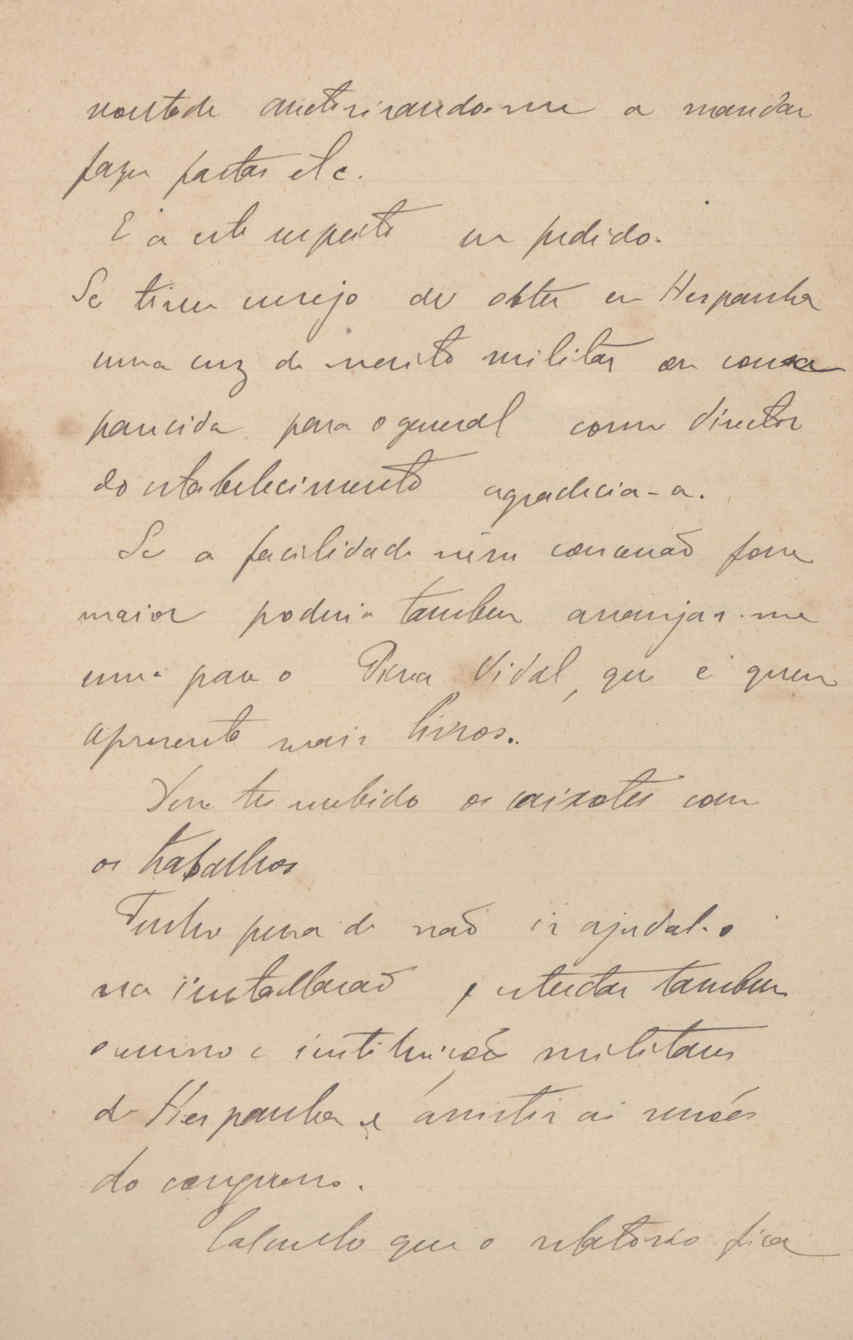 vontade auctorisando-me a mandar
fazer pastas etc.
E a este respeito um pedido.
Se tiver ensejo de obter em Hespanha
uma cruz de merito militar ou cousa
parecida para o general como director
do estabelecimento agradecia-a.
Se a facilidade n'essa concessão fosse
maior poderia tambem arranjar-me
uma para o Vidal, que é quem
apresenta mais livros.
Deve ter recebido os caixotes com
os trabalhos
Tenho pena de não ir ajudal-o
na installação, estudar tambem
o ensino e instituições militares
de Hespanha e ássistir ás sessões
do congresso.
Calculo que o relatorio fica